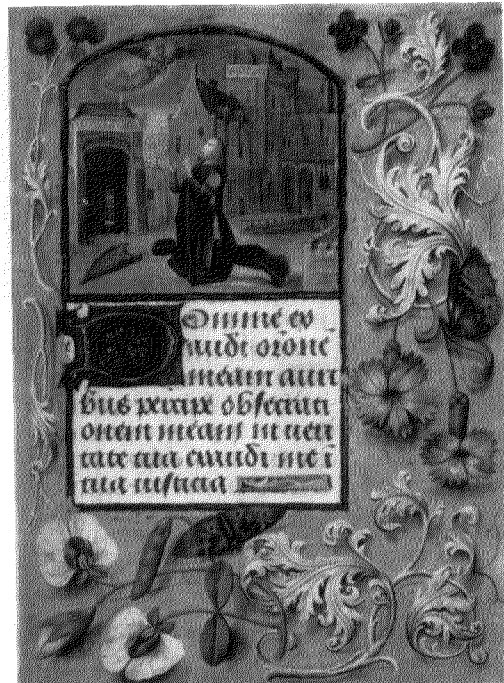 Domine ex
audi orōne
meam auri
bus percipe obsecrati
onem meam in veri
tate tua exaudi me i
tua iusticia